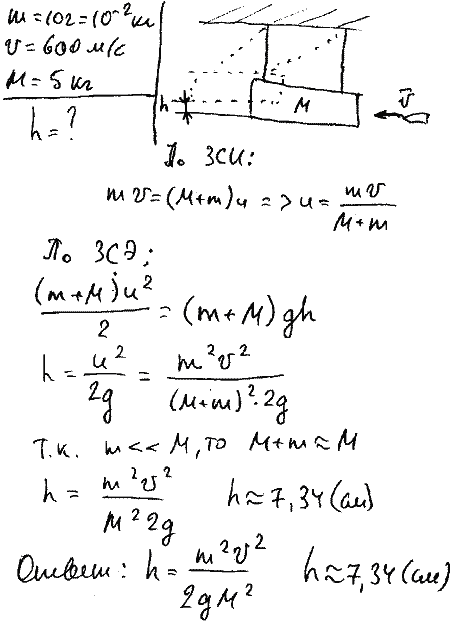 m = 10г = 10⁻² кг
v = 600 м/с
M = 5 кг
h = ?
h
M
v⃗
По ЗСИ:
mv = (M+m)u => u = mv/(M+m)
По ЗСЭ:
(m+M)u²/2 = (m+M)gh
h = u²/2g = m²v²/((M+m)²·2g)
Т.к. m << M, то M+m ≈ M
h = m²v²/(M²2g) h ≈ 7,34 (см)
Ответ: h = m²v²/(2gM²) h ≈ 7,34 (см)